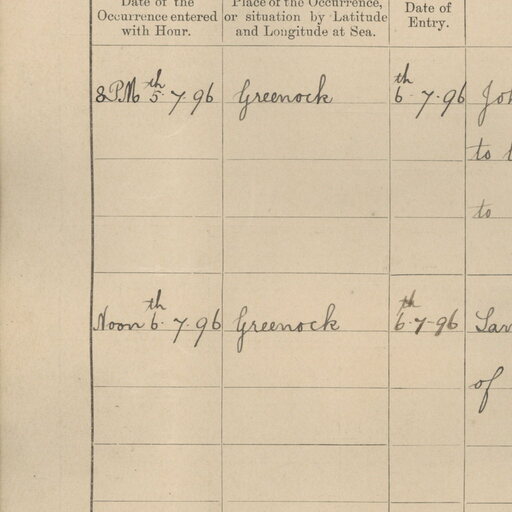 Date of the Occurrence entered with Hour.
Place of the Occurrence, or situation by Latitude and Longitude at Sea.
Date of Entry.
8 P.M 5th. 7. 96 Greenock 6th. 7. 96
to
to
Noon 6th. 7. 96 Greenock 6th. 7. 96
of